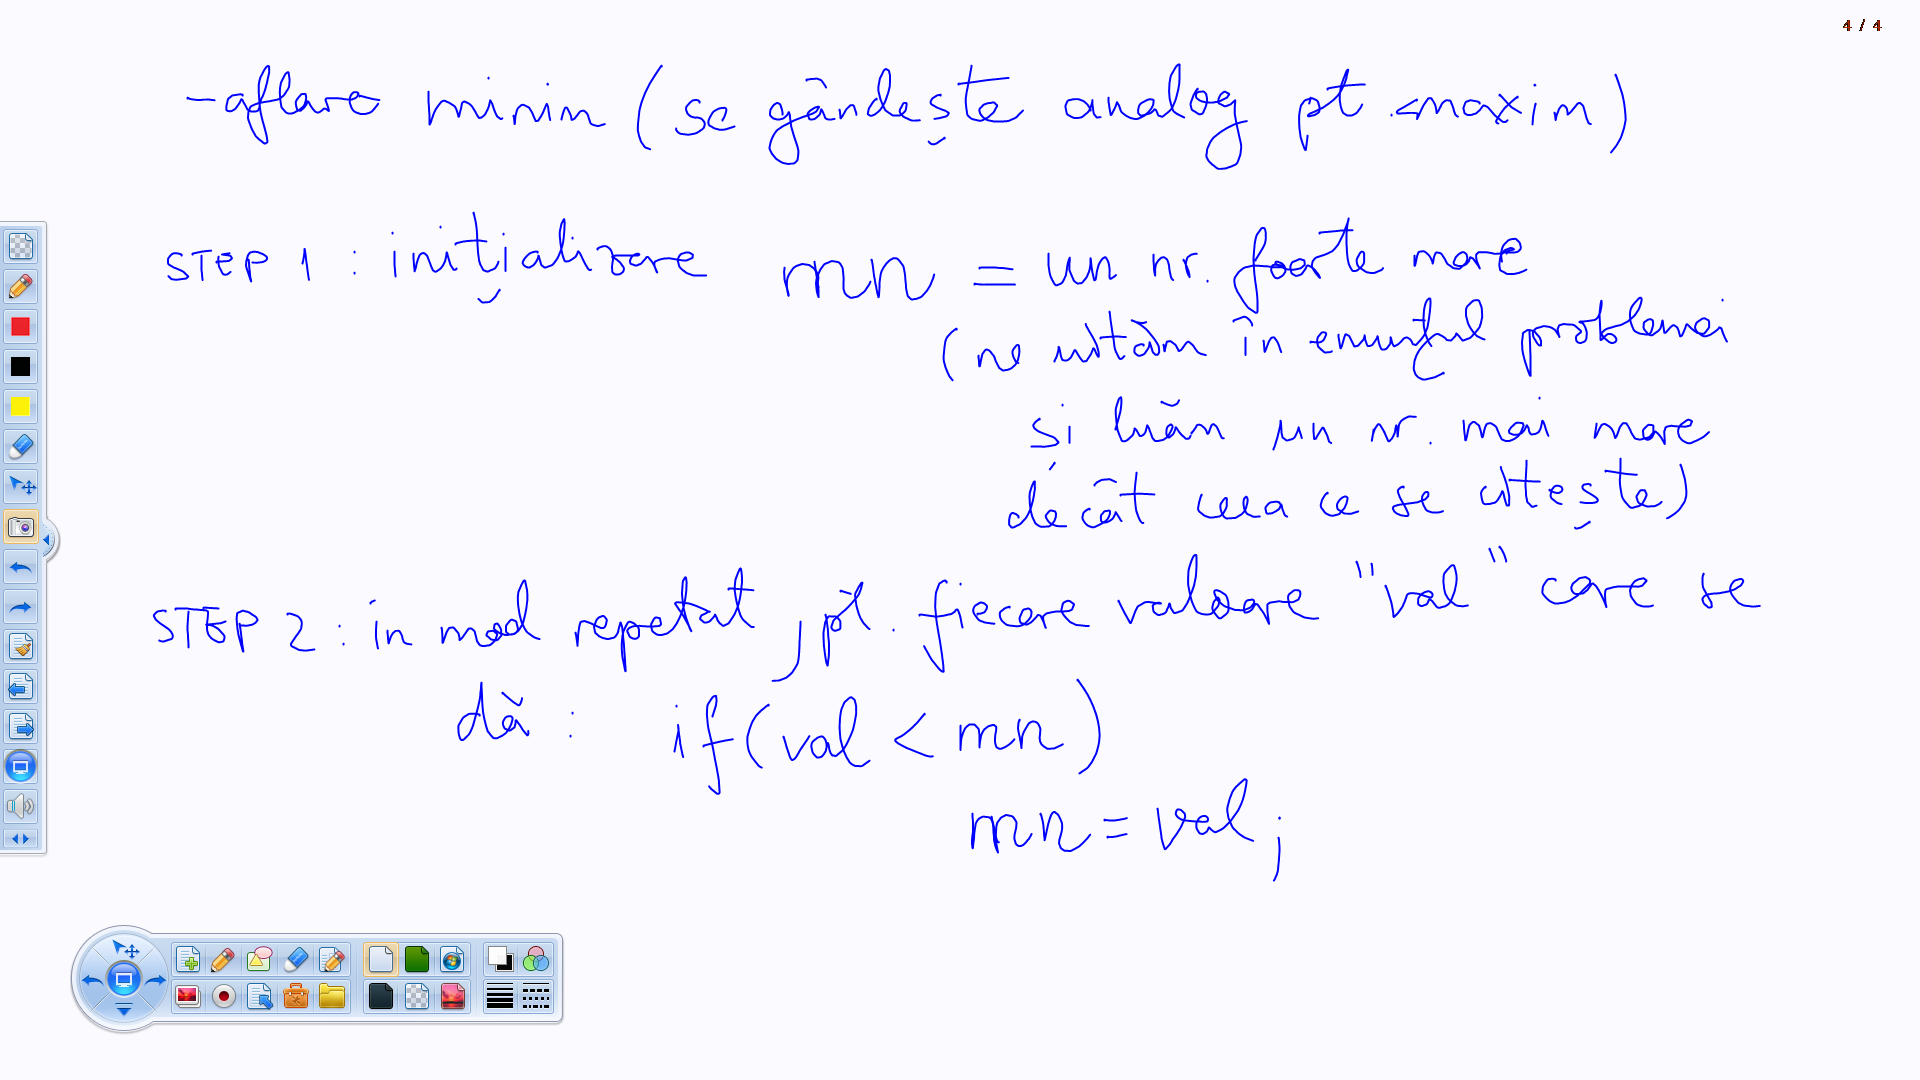 4 / 4
- aflare minim (se gândește analog pt. maxim)
STEP 1 : inițializare mn = un nr. foarte mare
(ne uităm în enunțul problemei
și luăm un nr. mai mare
decât ceea ce se citește)
STEP 2 : in mod repetat, pt. fiecare valoare "val" care se
dă : if(val < mn)
mn = val;